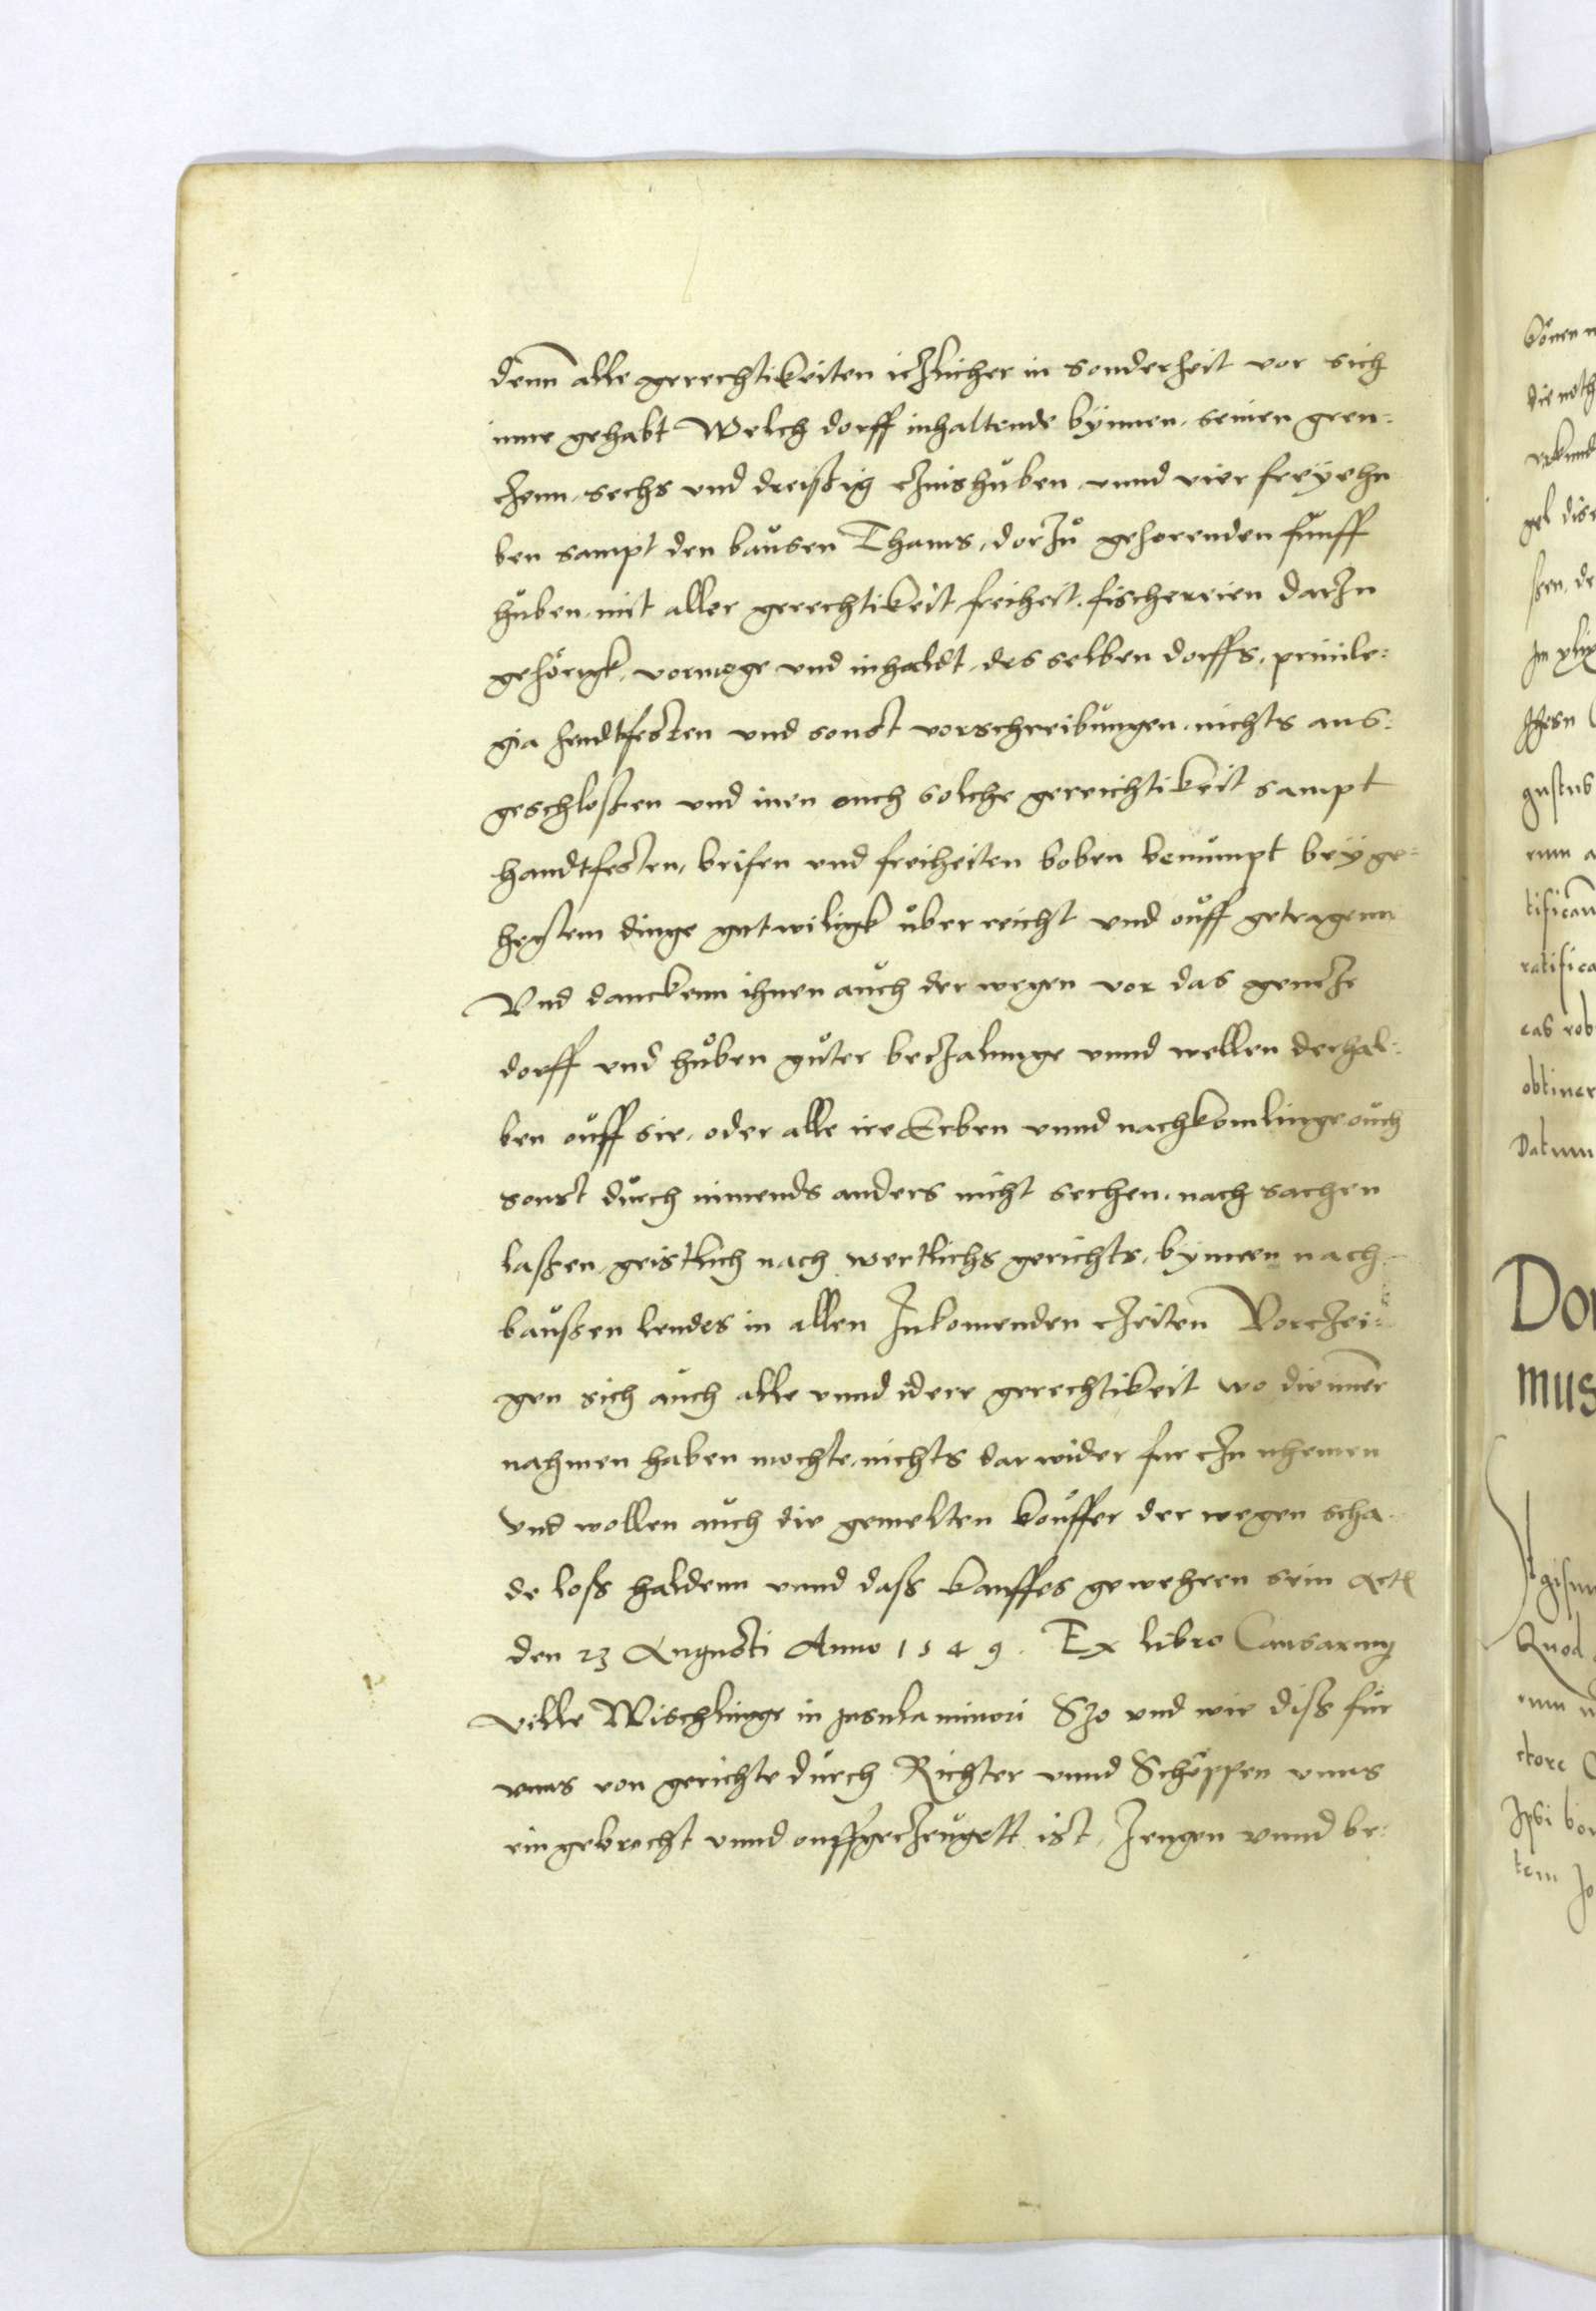 denn alle gerechtikeiten iczlicher in sonderheit vor sich
inne gehabt Welch dorff inhaltende bÿnnen, seinen gren:
czenn, sechs vnd dreissig czinshuben, vnnd vier freÿehu
ben sampt den bausen Thams, dorzu gehorenden funff
huben, mit aller gerechtikeit freiheit, fischereien darzu
gehörigk, vormoge vnd inhaldt, des selben dorffs, priuile:
gia handtfesten vnd sonst vorschreibungen, nichts aus:
geschlossen vnd inen ouch solche gerechtikeit sampt
handtfesten, briefen vnd freiheiten boben benumpt beÿ ge:
hegtem dinge gutwiligk uberreicht vnd ouff getragenn
Vnd danckenn ihnen auch der wegen vor das gancze
dorff vnd huben guter beczalunge vnnd wellen derhal:
ben ouff sie, oder alle ire Erben vnnd nachkomlinge ouch
sonst durch nimends anders nicht sechen, nach sachen
lassen, geistlich nach wertlichs gerichts, bÿnnen nach
baussen landes in allen zukomenden czeiten Vorczei:
gen sich auch alle vnnd idere gerechtikeit wo die imer
nahmen haben mochte, nichts dar wider fur czu nhemen
vnd wollen auch die gemelten kouffer der wegen scha
de loss haldenn vnnd dass kauffes gewehren sein Act
den 23 Augusti Anno 1549. Ex libro Causarum
ville Mischlinge in Insula minori Szo vnd wie diss fur
vnns von gerichte durch Richter vnnd Schöppen vnns
ein gebrocht vnnd ouffgeczeugett ist, zeugen vnnd be:
Datum
Do
mus
Quod